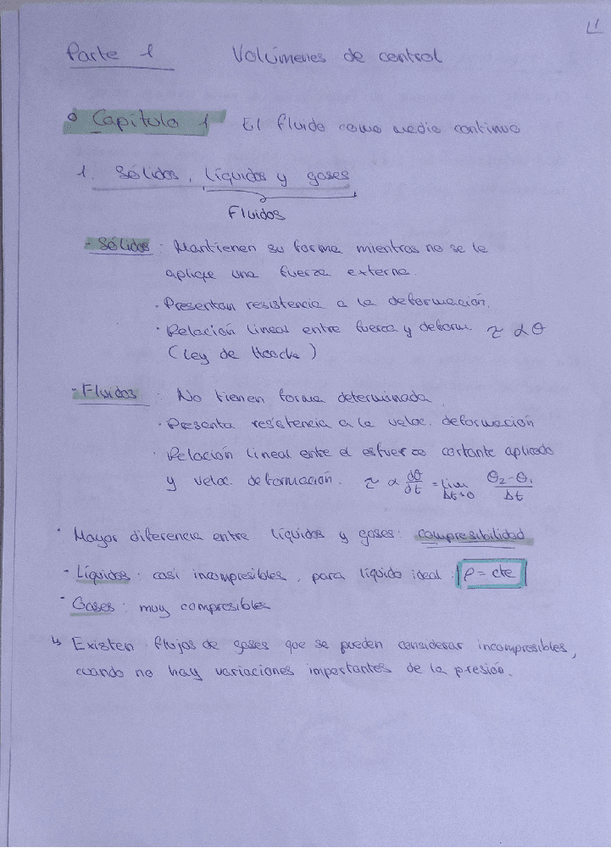 1
Parte 1 Volúmenes de control
Capítulo 1 El fluido como medio continuo
1. Sólidos, líquidos y gases
Fluidos
- Sólidos: Mantienen su forma mientras no se le
aplique una fuerza externa.
· Presentan resistencia a la deformación.
· Relación lineal entre fuerza y deform τ ∝ θ
(Ley de Hoocke)
- Fluidos: No tienen forma determinada.
· Presenta resistencia a la veloc. deformación
· Relación lineal entre el esfuerzo cortante aplicado
y veloc. deformación. τ ∝ dθ/dt = lim Δt→0 θ₂-θ₁/Δt
· Mayor diferencia entre líquidos y gases: compresibilidad
- Líquidos: casi incompresibles, para líquido ideal: ρ = cte
- Gases: muy compresibles
↳ Existen flujos de gases que se pueden considerar incompresibles,
cuando no hay variaciones importantes de la presión.